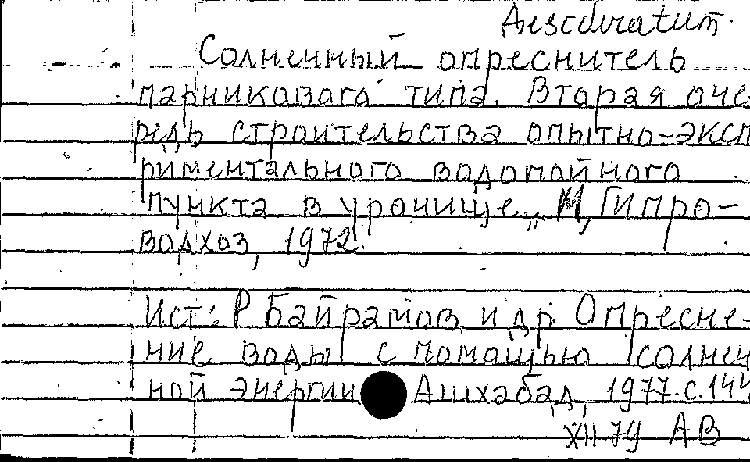 Desideratum.
Солнечный опреснитель
парникового типа. Вторая оче-
редь строительства опытно-эксп
риментального водопойного
пункта в урочище „ М, Гипро-
водхоз, 1972
Ист.: Р Байрамов и др. Опресне-
ние воды с помощью солнеч
ной энергии Ашхабад, 1977. с. 144
XII.79 АВ